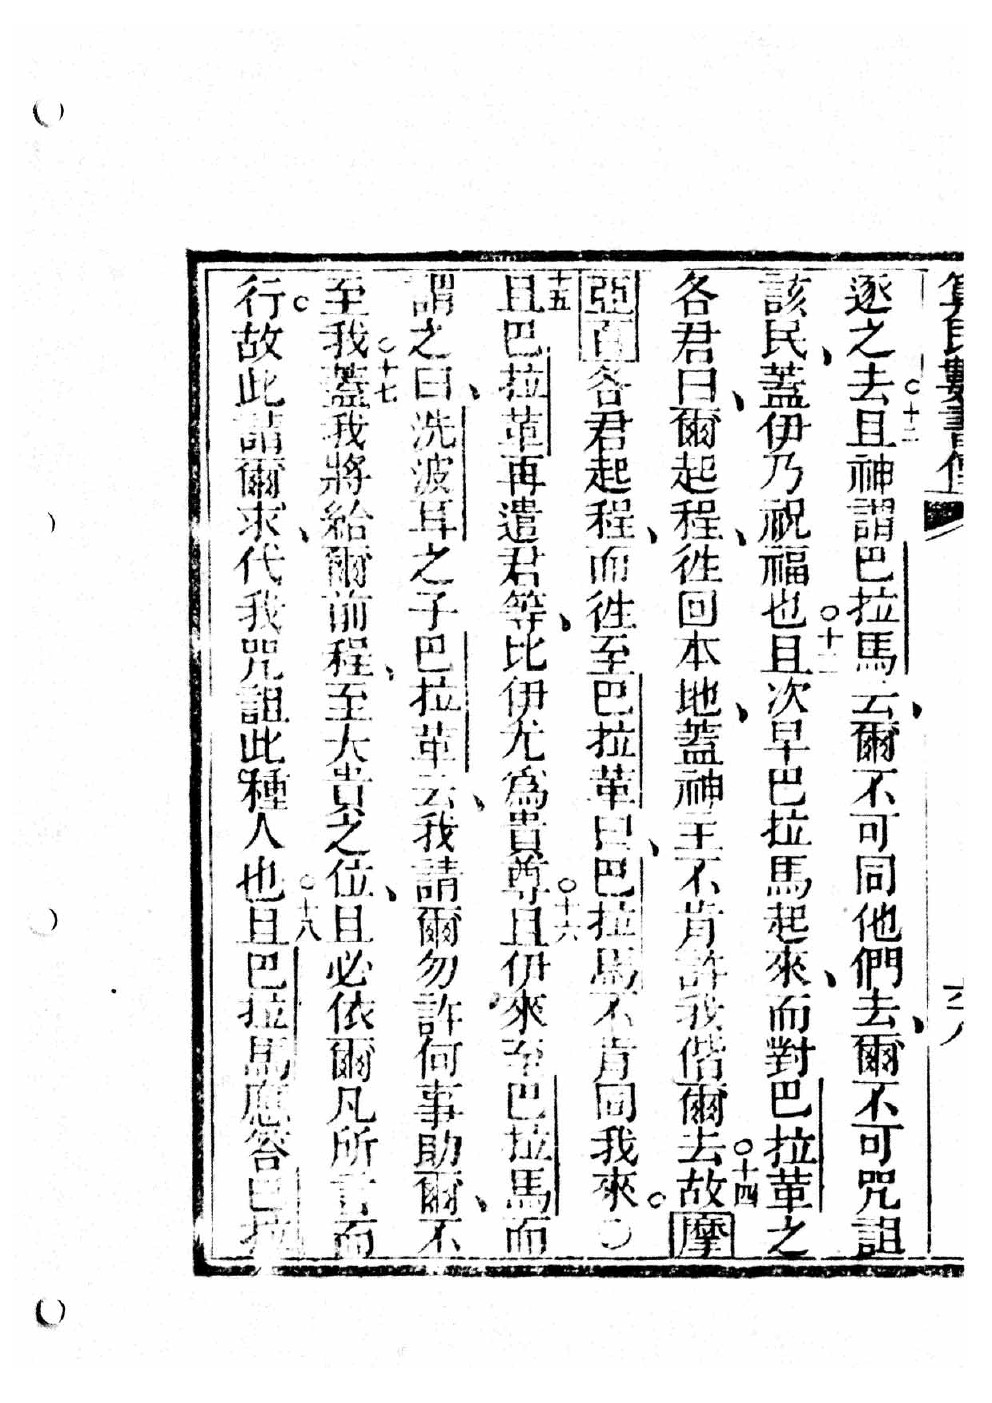 算民數書傳
六八
逐之去○十二且神謂巴拉馬云、爾不可同他們去、爾不可咒詛
該民、蓋伊乃祝福也○十三且次早巴拉馬起來、而對巴拉革之
各君曰、爾起程、徃回本地、蓋神主不肯許我偕爾去○十四故摩
亞百各君起程、而徃至巴拉革曰、巴拉馬不肯同我來。○
十五且巴拉革再遣君等、比伊尤爲貴尊○十六且伊來至巴拉馬而
謂之曰、洗波耳之子巴拉革云、我請爾勿許何事助爾、不
至我○十七蓋我將給爾前程、至大貴之位、且必依爾凡所言而
行。故此請爾求、代我咒詛此種人也○十八且巴拉馬應答巴拉